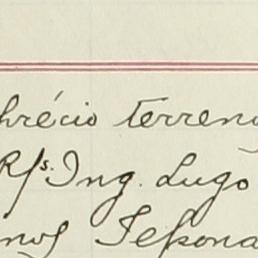 hrécio terreno
R/s. Ing. Lugo
nos